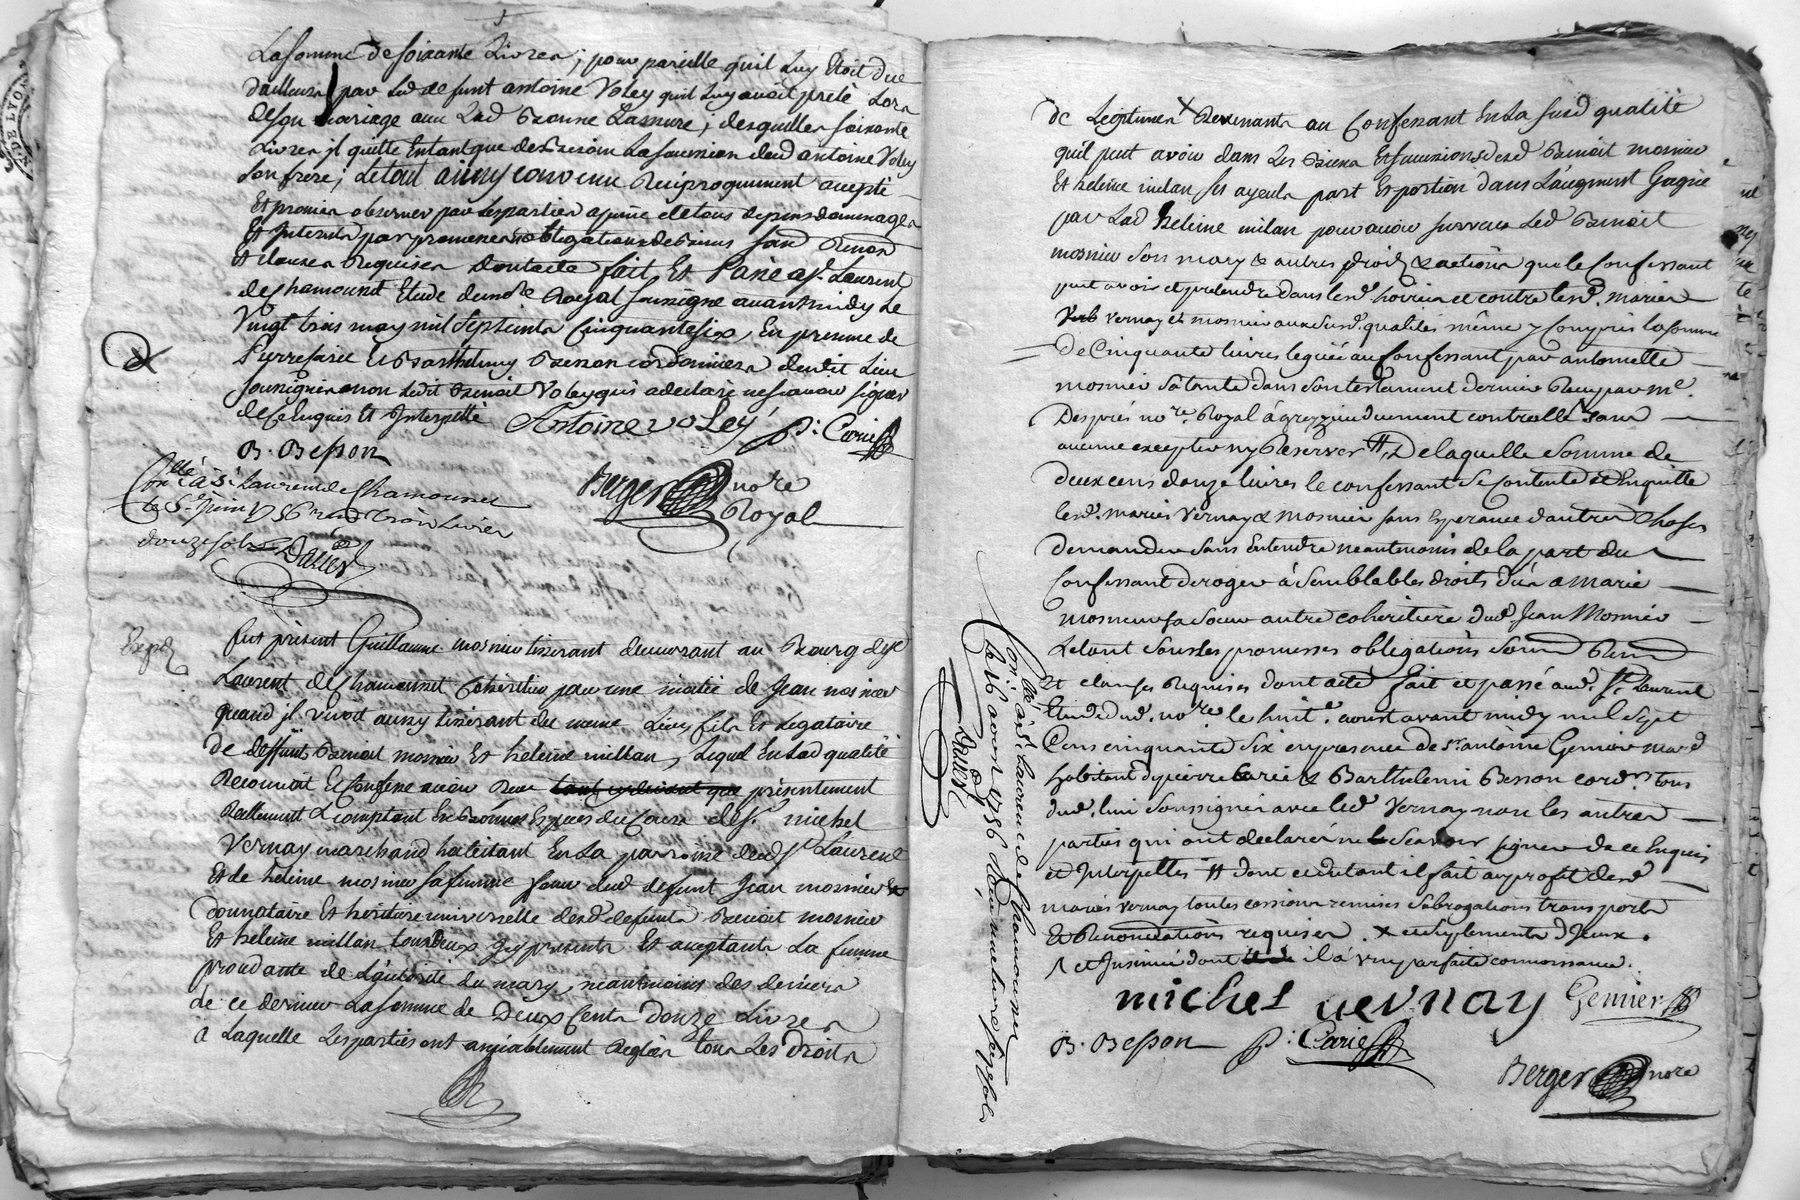 La somme de soixante Livres; pour pareille quil luy Etoit due
d'ailleurs par led defunt antoine Voley quil luy avoit preté Lors
de son mariage avec Lad ; desquelles soixante
Livres il quitte Entant que de Besoin La succession dud antoine Voley
son frere; Le tout ainsy convenu Reciproquement accepté
Et promis observer par les parties a peine de tous depens dommages
Et Interets par promesses obligations de biens
Et clauses Requises dont acte fait Et Passé a St. Laurent
de chamousset Etude du nore Royal soussigné avant midy Le
Vingt trois may mil Septcents Cinquantesix, En presence de
Pierre Carie et Barthelemy Besson cordonniers dudit Lieu
soussignés non ledit Benoit Voley qui a declaré ne scavoir signer
de ce Enquis Et Interpellé Antoine voLey P: Carie
B. Besson
Berger nore
Royal
Conllé à St Laurent de Chamousset
le 5e Juin 1756 Trois Livres
douze sols Daviet
Expd
fut présent Guillaume mosnier tisserant demeurant au Bourg de St
Laurent de chamousset Cohéritier pour une moitié de Jean mosnier
quand il vivoit aussy tisserant du meme Lieu, fils Et Legataire
de deffunts Benoit mosnier Et heleine millan, Lequel En Lad qualité
Reconnoit Et Confesse avoir Receu présentement
Reellement & comptant En Bonnes Espèces du Cours de Sr. michel
Vernay marchand habitant En La parroisse dud St Laurent
Et de heleine mosnier sa femme sœur dud defunt Jean mosnier Et
donnataire Et héritiere universelle desd defunts Benoit mosnier
Et heleine millan tous deux Icy presents Et acceptants La femme
procedante de L'autorité du mary, neantmoins des deniers
de ce dernier La somme de Deux Cents douze Livres
a Laquelle Les parties ont amiablement Reglés tous Les Droits
de Legitimes X Revenants au Confessant En La susd qualité
quil peut avoir dans Les Biens Et successions desd Benoit mosnier
Et heleine milan ses ayeuls part Et portion dans L'augment Gagné
par Lad heleine milan pour avoir survecu Led Benoit
mosnier Son mary & autres droits & actions que le Confessant
peut avoir et pretendre dans lesd. hoiries et contre lesd. mariés
Vernay et mosnier aux susd. qualités même y Compris la somme
de Cinquante livres leguée au Confessant par antoinette
mosnier sa tante dans son testament dernier Reçu par me.
Després nore. Royal duement controllé sans
aucune exception ny Reserver # De laquelle Somme de
deux cens douze livres le confessant Se Contente et Enquitte
lesd. mariés Vernay & mosnier sans Esperance d'autres choses
demander Sans Entendre neantmoins de la part du
Confessant deroger à Semblables droits dus a marie
mosnier sa Soeur autre coheritiere dud. Jean Mosnier
Le tout Sous les promesses obligations
Et clauses Requises dont acte fait et passé aud. St Laurent
Etude dud. nore le huite. aoust avant midy mil Sept
Cens cinquante Six en presence de Sr. antoine Genier mard
habitant & Barthelemi Besson cordrs. tous
dud. lieu Soussignés avec led. Vernay non les autres
parties qui ont declarés ne Scavoir signer de ce Enquis
et Interpellés # dont et du tout il fait au profit desd
mariés Vernay toutes cessions remises Subrogations transports
Et Renonciations requises. X et Suplements d'Iceux.
il à une parfaite connoissance.
michel vernay Genier
B. Besson P: Carie
Berger nore
Conllé à St Laurent de Chamousset
le 16 aoust 1756 Reçu une livre sept sols
Daviet